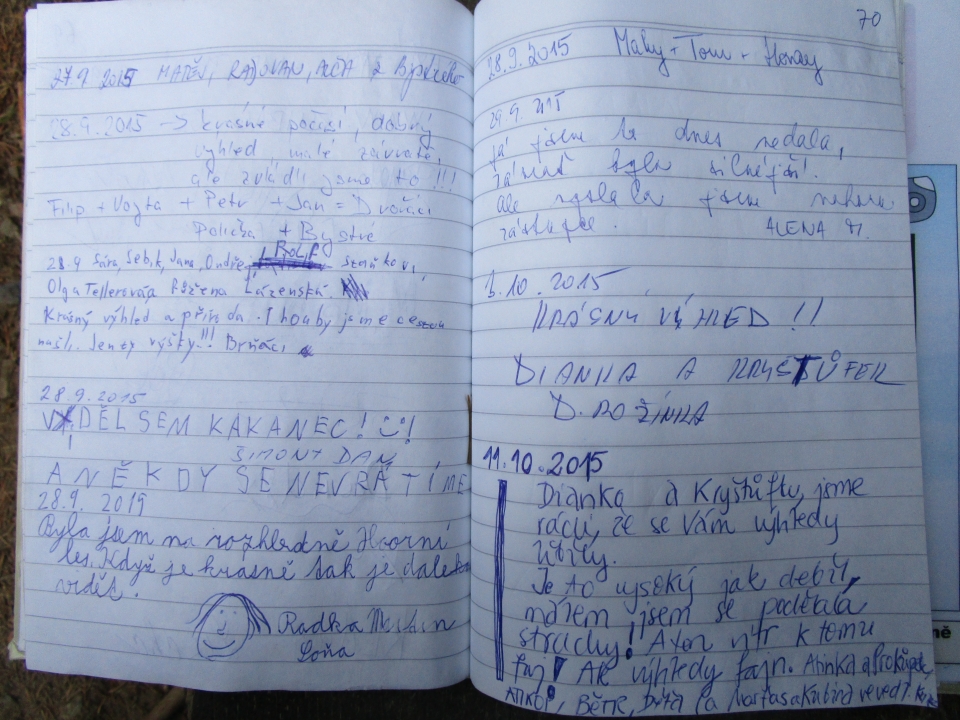 27.9.2015 MATĚJ, RADOVAN, z
28.9.2015 → krásné počasí, dobrý
výhled malé závratě,
ale zvládli jsme to !!!
Filip + Vojta + Petr + Jan = Dvořáci
Polička + Bystré
28.9 Sára, Sebík, Jana, Ondřej
Olga Tellerová a Růžena Lázenská.
Krásný výhled a příroda. I houby jsme cestou
našli. Jen ty výšky!!! Brňáci
28.9.2015
DĚL SEM KAKANEC! !
ŠIMON DAN
A NĚKDY SE NEVRÁTÍME
28.9.2019
Byla jsem na rozhledně Horní
les. Když je krásně tak je daleko
vidět.
Radka Martin
Soňa
70
28.9.2015 Maky + Tom + Honzy
29.9.
já jsem to dnes nedala,
závrať byla silnější.
Ale poslala jsem nahoru
zástupce. ALENA
1.10.2015
KRÁSNÝ VÝHLED !!
DIANKA A KRYŠTŮFEK
D. ROŽÍNKA
11.10.2015
Dianka a Kryštůfku, jsme
rádi, že se Vám výhledy
líbily.
Je to vysoký jak debil,
málem jsem se podělala
strachy! A ten vítr k tomu
fuj! Ale výhledy fajn. Alinka a Prokůpek